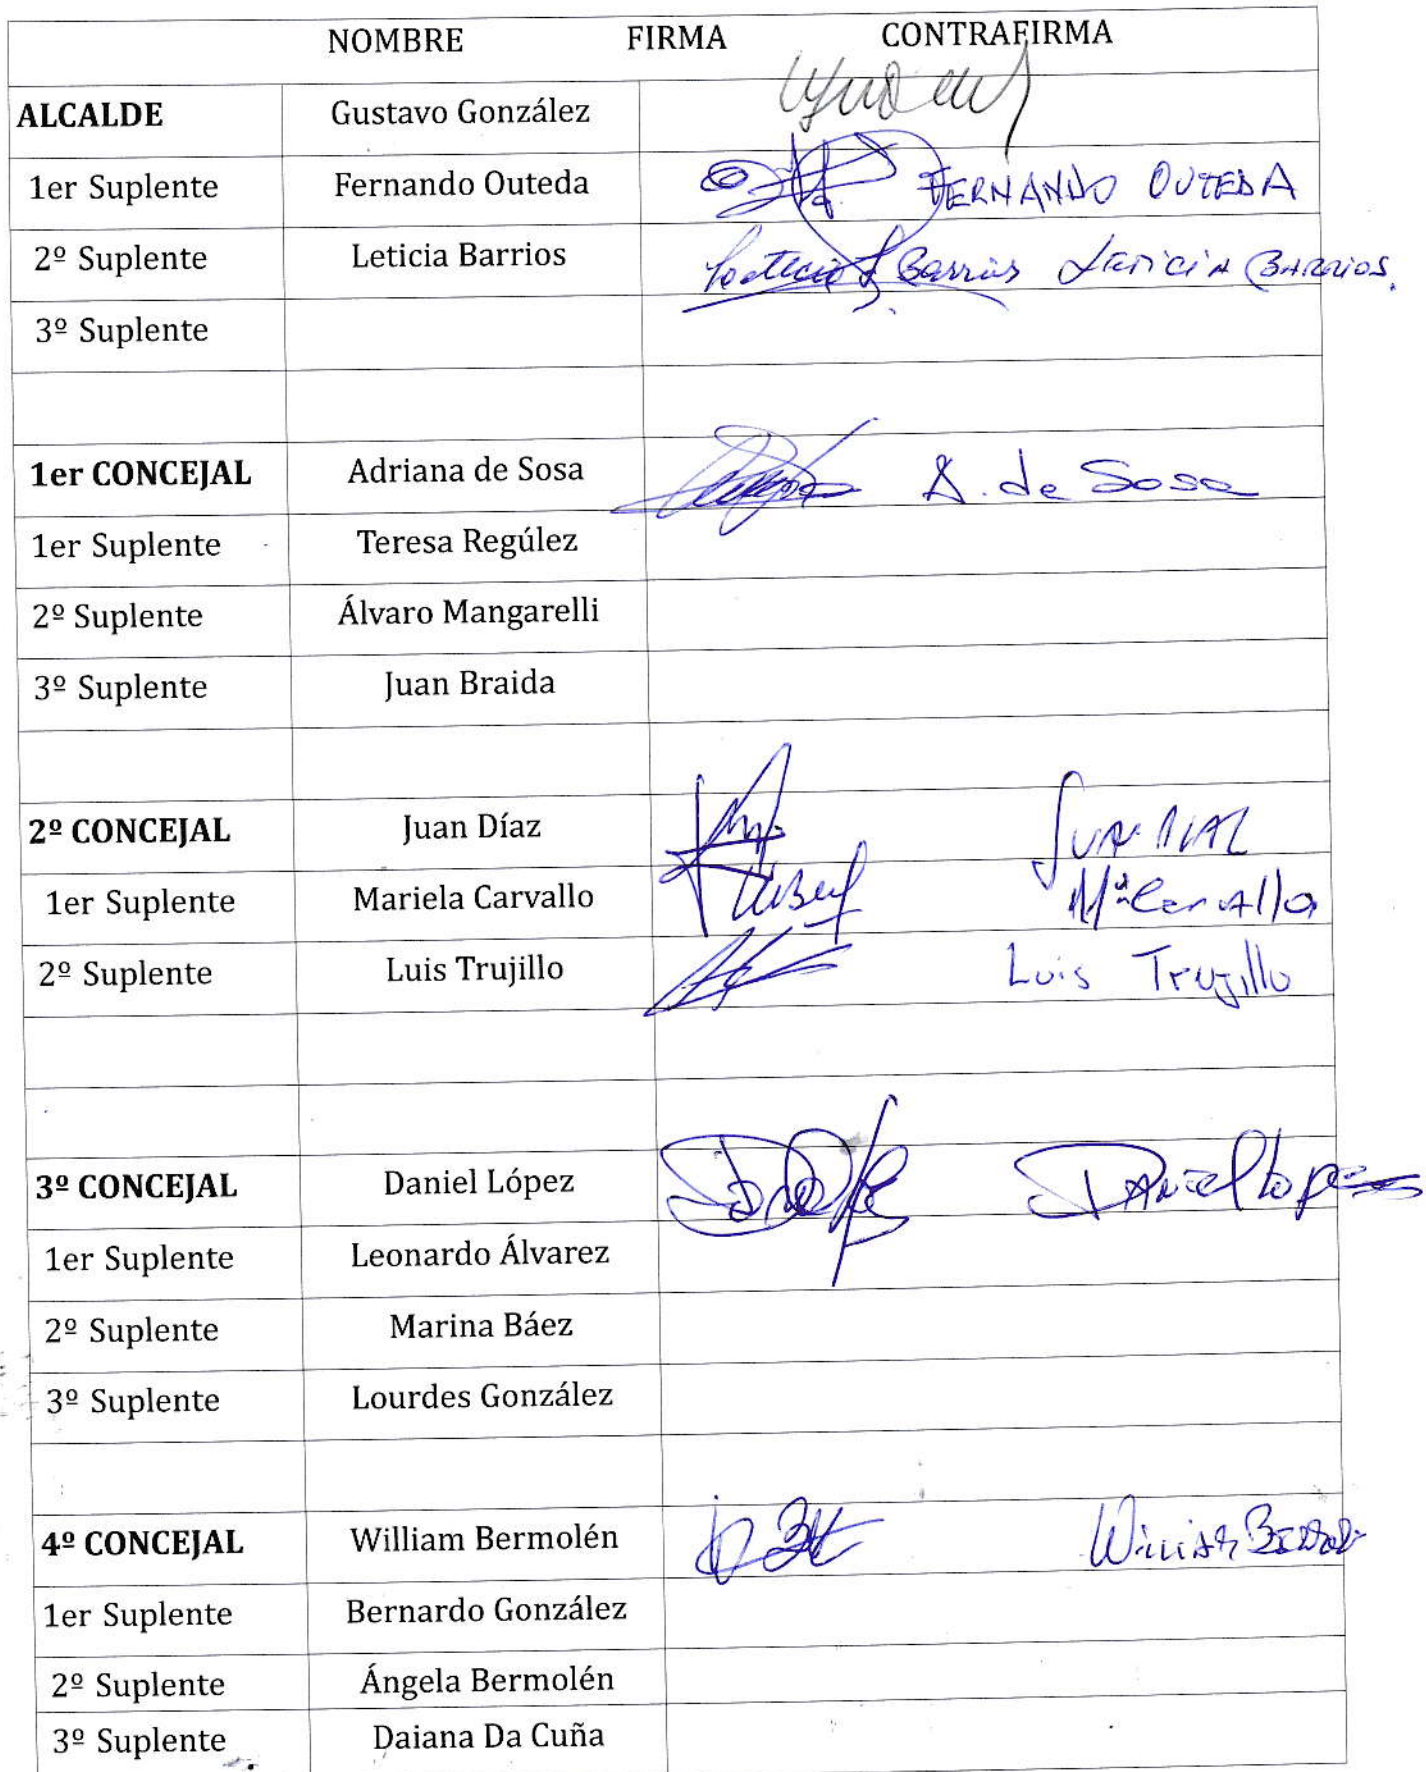 NOMBRE FIRMA CONTRAFIRMA
ALCALDE Gustavo González
1er Suplente Fernando Outeda FERNANDO OUTEDA
2º Suplente Leticia Barrios Leticia Barrios LETICIA BARRIOS.
3º Suplente
1er CONCEJAL Adriana de Sosa A. de Sosa
1er Suplente Teresa Regúlez
2º Suplente Álvaro Mangarelli
3º Suplente Juan Braida
2º CONCEJAL Juan Díaz JUAN DIAZ
1er Suplente Mariela Carvallo Mª Carvallo
2º Suplente Luis Trujillo Luis Trujillo
3º CONCEJAL Daniel López Daniel Lopez
1er Suplente Leonardo Álvarez
2º Suplente Marina Báez
3º Suplente Lourdes González
4º CONCEJAL William Bermolén William
1er Suplente Bernardo González
2º Suplente Ángela Bermolén
3º Suplente Daiana Da Cuña